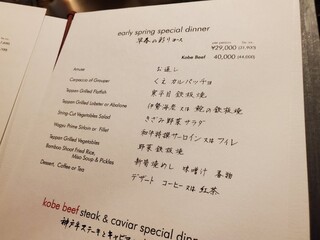 early spring special dinner
早春の彩りコース
¥29,000 (31,900)
Kobe Beef 40,000 (44,000)
Amuse お通し
Carpaccio of Grouper くえ カルパッチョ
Teppan Grilled Flatfish 寒平目 鉄板焼
Teppan Grilled Lobster or Abalone 伊勢海老 又は 鮑の鉄板焼
String-Cut Vegetables Salad きざみ野菜サラダ
Wagyu Prime Sirloin or Fillet 和牛特撰サーロイン又はフィレ
Teppan Grilled Vegetables 野菜 鉄板焼
Bamboo Shoot Fried Rice, 新筍焼めし 味噌汁 香物
Miso Soup & Pickles
Dessert, Coffee or Tea デザート コーヒー又は紅茶
kobe beef steak & caviar special dinner
神戸牛ステーキとキャビア